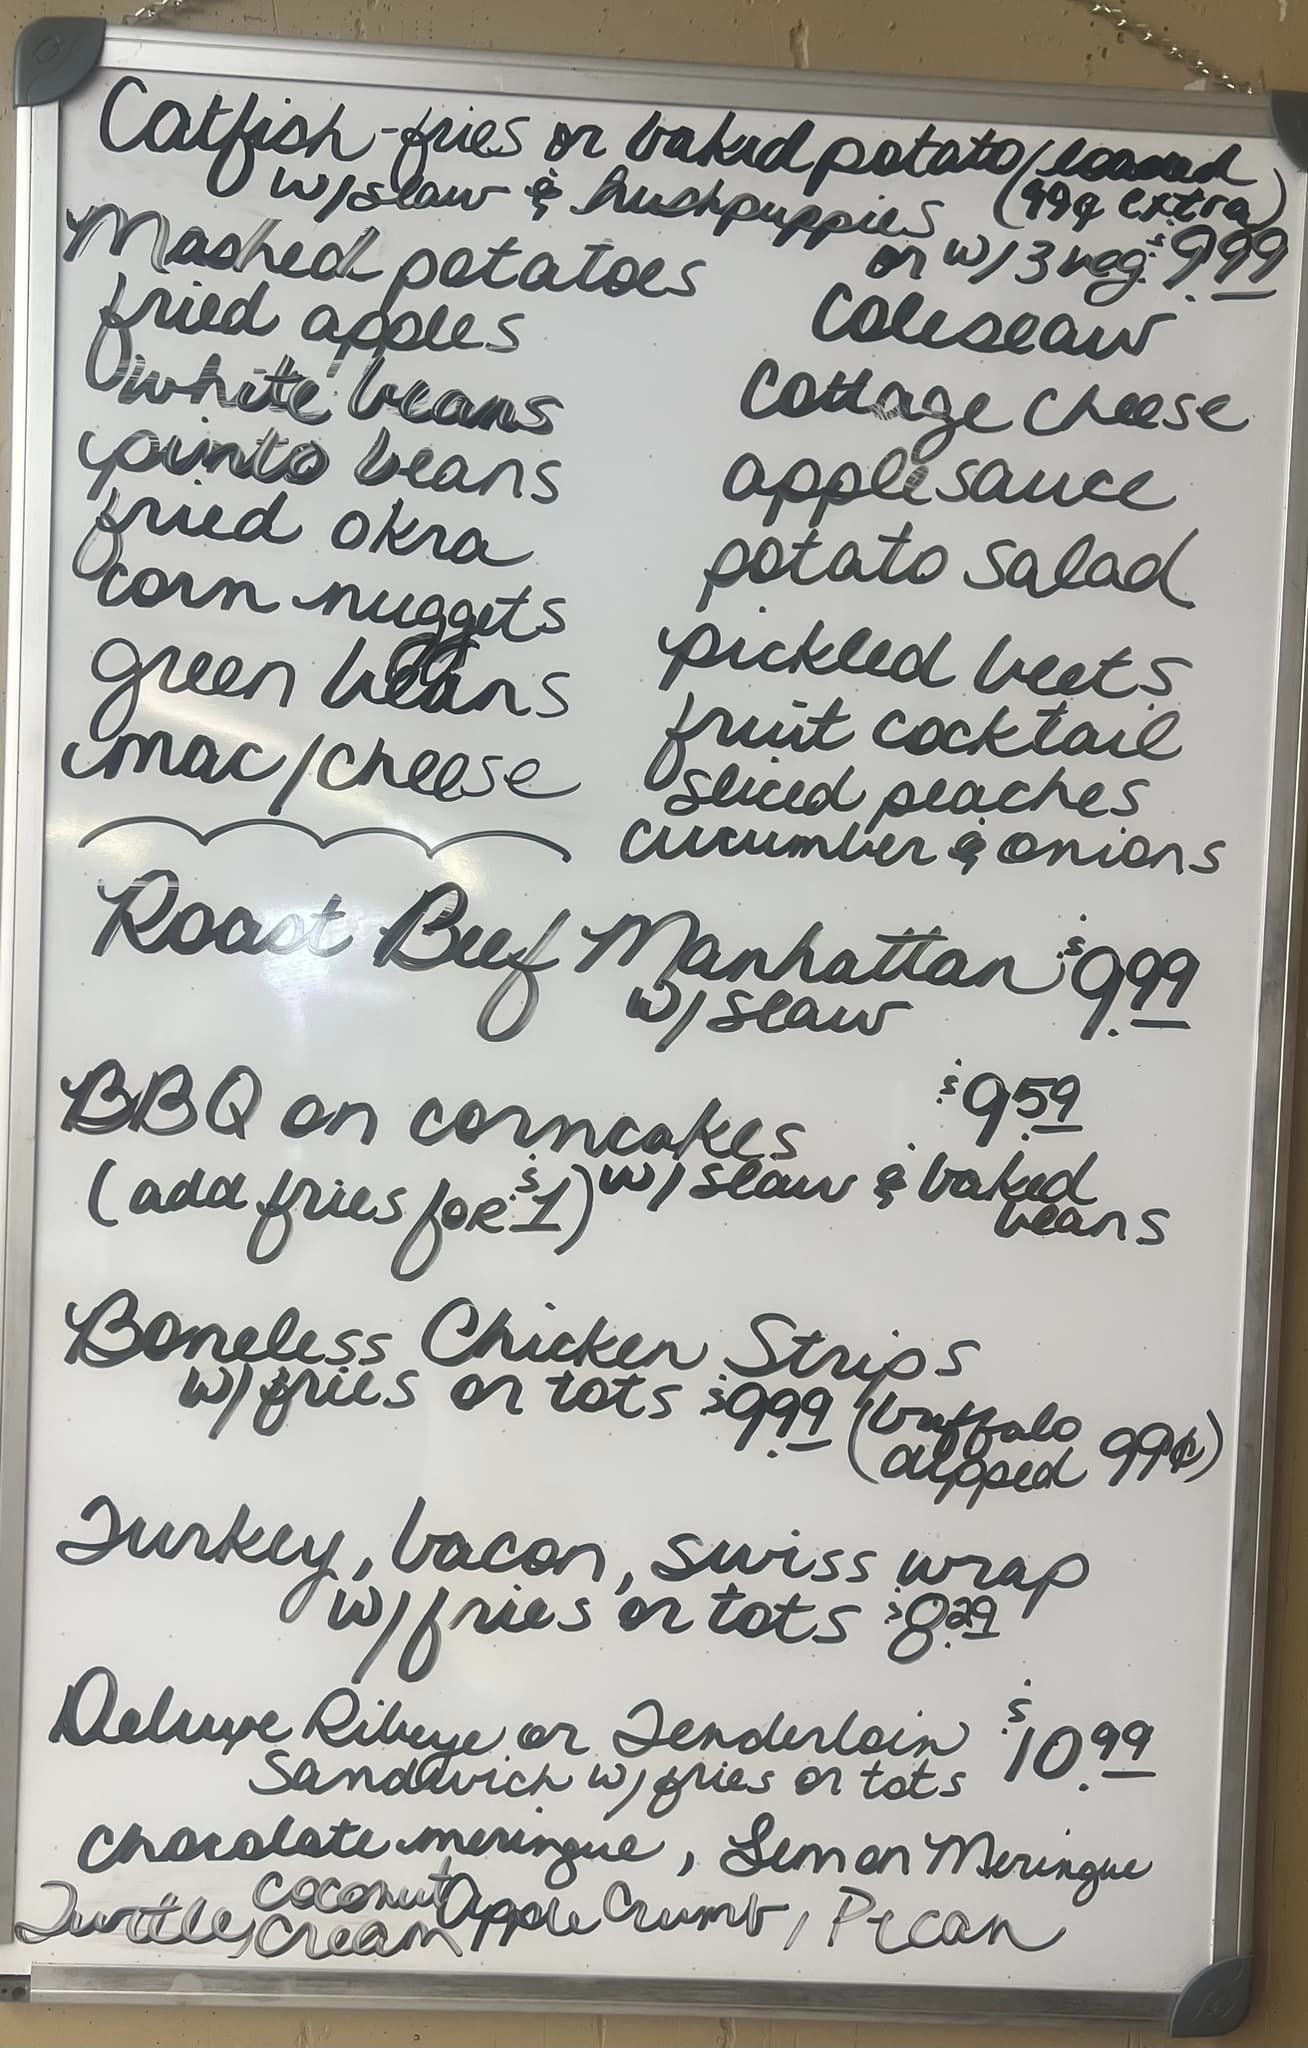 Catfish - fries or baked potato (loaded
99¢ extra)
w/slaw & hushpuppies
or w/3 veg. $9.99
Mashed potatoes
fried apples
white beans
pinto beans
fried okra
corn nuggets
green beans
mac/cheese
Coleslaw
Cottage cheese
applesauce
potato salad
pickled beets
fruit cocktail
sliced peaches
cucumber & onions
Roast Beef Manhattan $9.99
w/slaw
BBQ on corncakes $9.59
(add fries for $1) w/slaw & baked
beans
Boneless Chicken Strips
w/fries or tots $9.99 (buffalo
dipped 99¢)
Turkey, bacon, swiss wrap
w/fries or tots $8.29
Deluxe Ribeye or Tenderloin $10.99
Sandwich w/fries or tots
Chocolate meringue, Lemon Meringue
Turtle, Coconut Cream Apple Crumb, Pecan